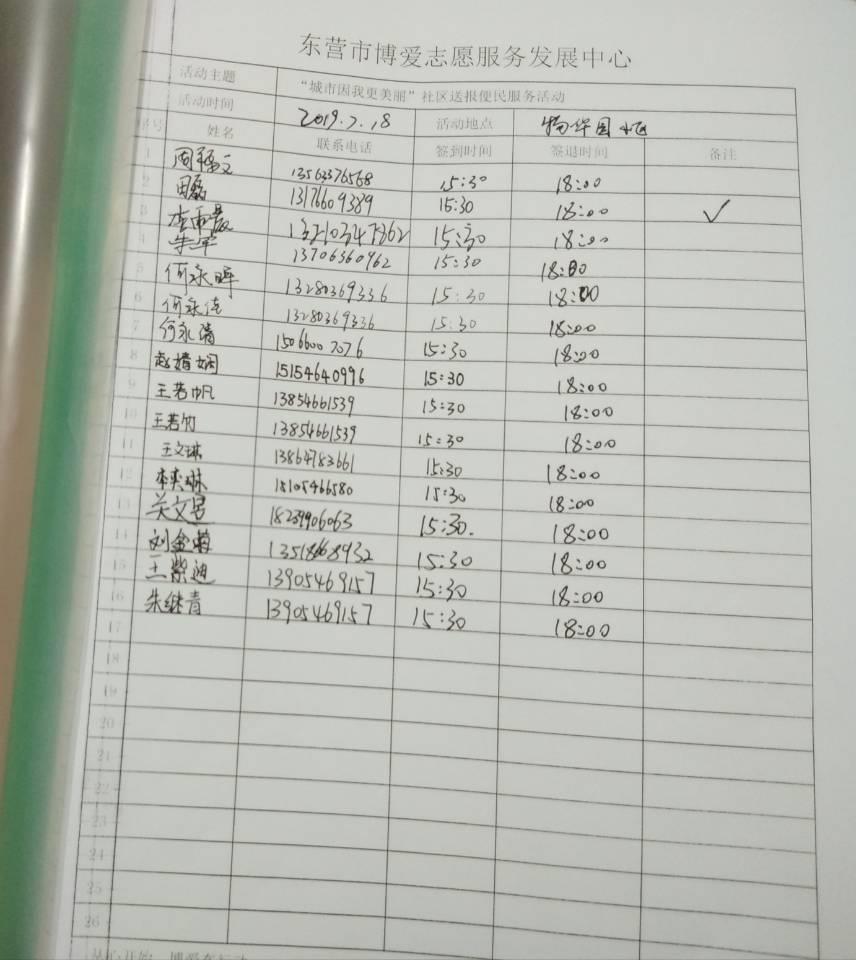 东营市博爱志愿服务发展中心
活动主题 “城市因我更美丽”社区送报便民服务活动
活动时间 2019.7.18 活动地点 物华园小区
序号 姓名 联系电话 签到时间 签退时间 备注
1 周福文 13563376568 15:30 18:00
2 田磊 13176609389 15:30 18:00 ✓
3 李雨晨 15:30 18:00
4 李军 13706360962 15:30 18:00
5 何永晖 13280369336 15:30 18:00
6 何永佳 13280369336 15:30 18:00
7 何永清 15066007076 15:30 18:00
8 赵婧娴 15154640996 15:30 18:00
9 王若帆 13854661539 15:30 18:00
10 王若竹 13854661539 15:30 18:00
11 王文琳 13864783661 15:30 18:00
12 李奕琳 18105466580 15:30 18:00
13 关文昌 18239906063 15:30. 18:00
14 刘金菊 13518668932 15:30 18:00
15 王紫迪 13905469157 15:30 18:00
16 朱继青 13905469157 15:30 18:00
17
18
19
20
21
22
23
24
25
26